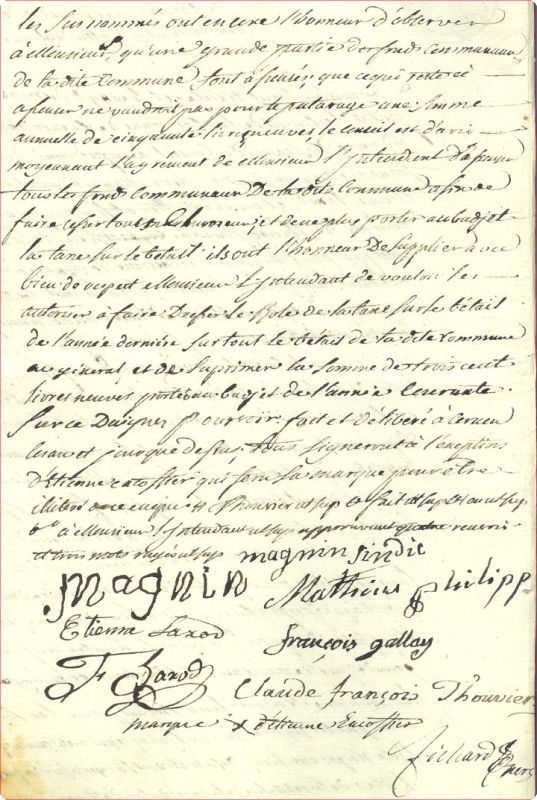 les Sus nommés ont encore l'honneur d'observer
à Monsieur, qu'une grande partie des fonds Communaux
de la dite Commune sont afeués, que ce qui reste à
afeuer ne vaudroit pas pour le paturage une somme
annuelle de cinquante livres neuves, le Conseil est d'avis
moyennant l'agrément de Monsieur l'Intendent d'afeuer
tous les fonds Communaux De la dite Commune afin de
faire cesser tout et de ne plus porter au budjet
la taxe sur le betail ils ont l'honneur De Supplier avec
bien de respect Monsieur l'Intendant de vouloir les
autoriser à faire Dresser le Role de la taxe sur les bétail
de l'année dernière sur tout le bétail de la dite Commune
au général et de Suprimer la Somme de trois cent
livres neuves portée au budjet de l'année Courante
Sur ce Daignez pourvoir fait et délibéré à
les an et jour que dessus tous signeront à l'exception
d'Etienne qui fera sa marque pour être
illiteré
à Monsieur l'Intendant approuvant quatre
et trois mots
magnin sindic
Magnin Mathieu philipp
Etienne Saxod
françois gallay
F Saxod
Claude françois Thouvier
marque x d'étienne